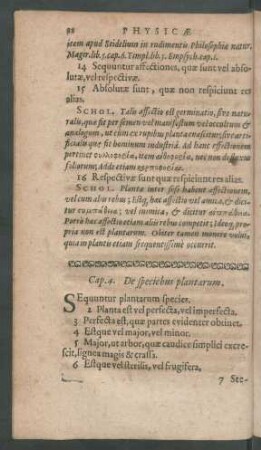 88 PHYSICÆ
item apud Bridelium in rudimentis Philosophiæ natur.
Magir.lib.5.cap.6. Timpl.lib.5. Empsych.cap.1.
14 Sequuntur affectiones, quæ sunt vel abso-
lutæ, vel respectivæ.
15 Absolutæ sunt, quæ non respiciunt res
alias.
SCHOL. Talis affectio est germinatio, sive natu-
ralis, quæ fit per semen vel manifestum vel occultum &
analogum, ut cum ex rupibus plantæ enascitur; sive arti-
ficialis quæ fit hominum industriâ. Ad hanc affectionem
pertinet
florum; Adde etiam
16 Respectivæ sunt quæ respiciunt res alias.
SCHOL. Planta inter sese habent affectionem,
vel cum aliis rebus; Estq; hæc affectio vel amica, & dici-
tur συμπάθεια; vel inimica, & dicitur ἀντιπάθεια.
Porrò hæc affectio etiam aliis rebus competit; Ideoq; pro-
pria non est plantarum. Obiter tamen monere volui,
quia in plantis etiam frequentissimè occurrit.
Cap. 4. De speciebus plantarum.
SEquuntur plantarum species.
2 Planta est vel perfecta, vel imperfecta.
3 Perfecta est, quæ partes evidenter obtinet.
4 Estque vel major, vel minor.
5 Major, ut arbor, quæ caudice simplici excre-
scit, lignea magis & crassa.
6 Estque vel sterilis, vel frugifera.
7 Ste-